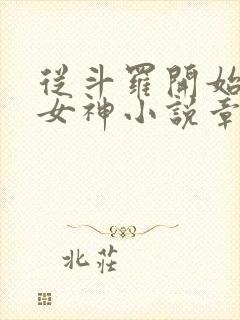 從斗羅開始
女神小說章
北莊